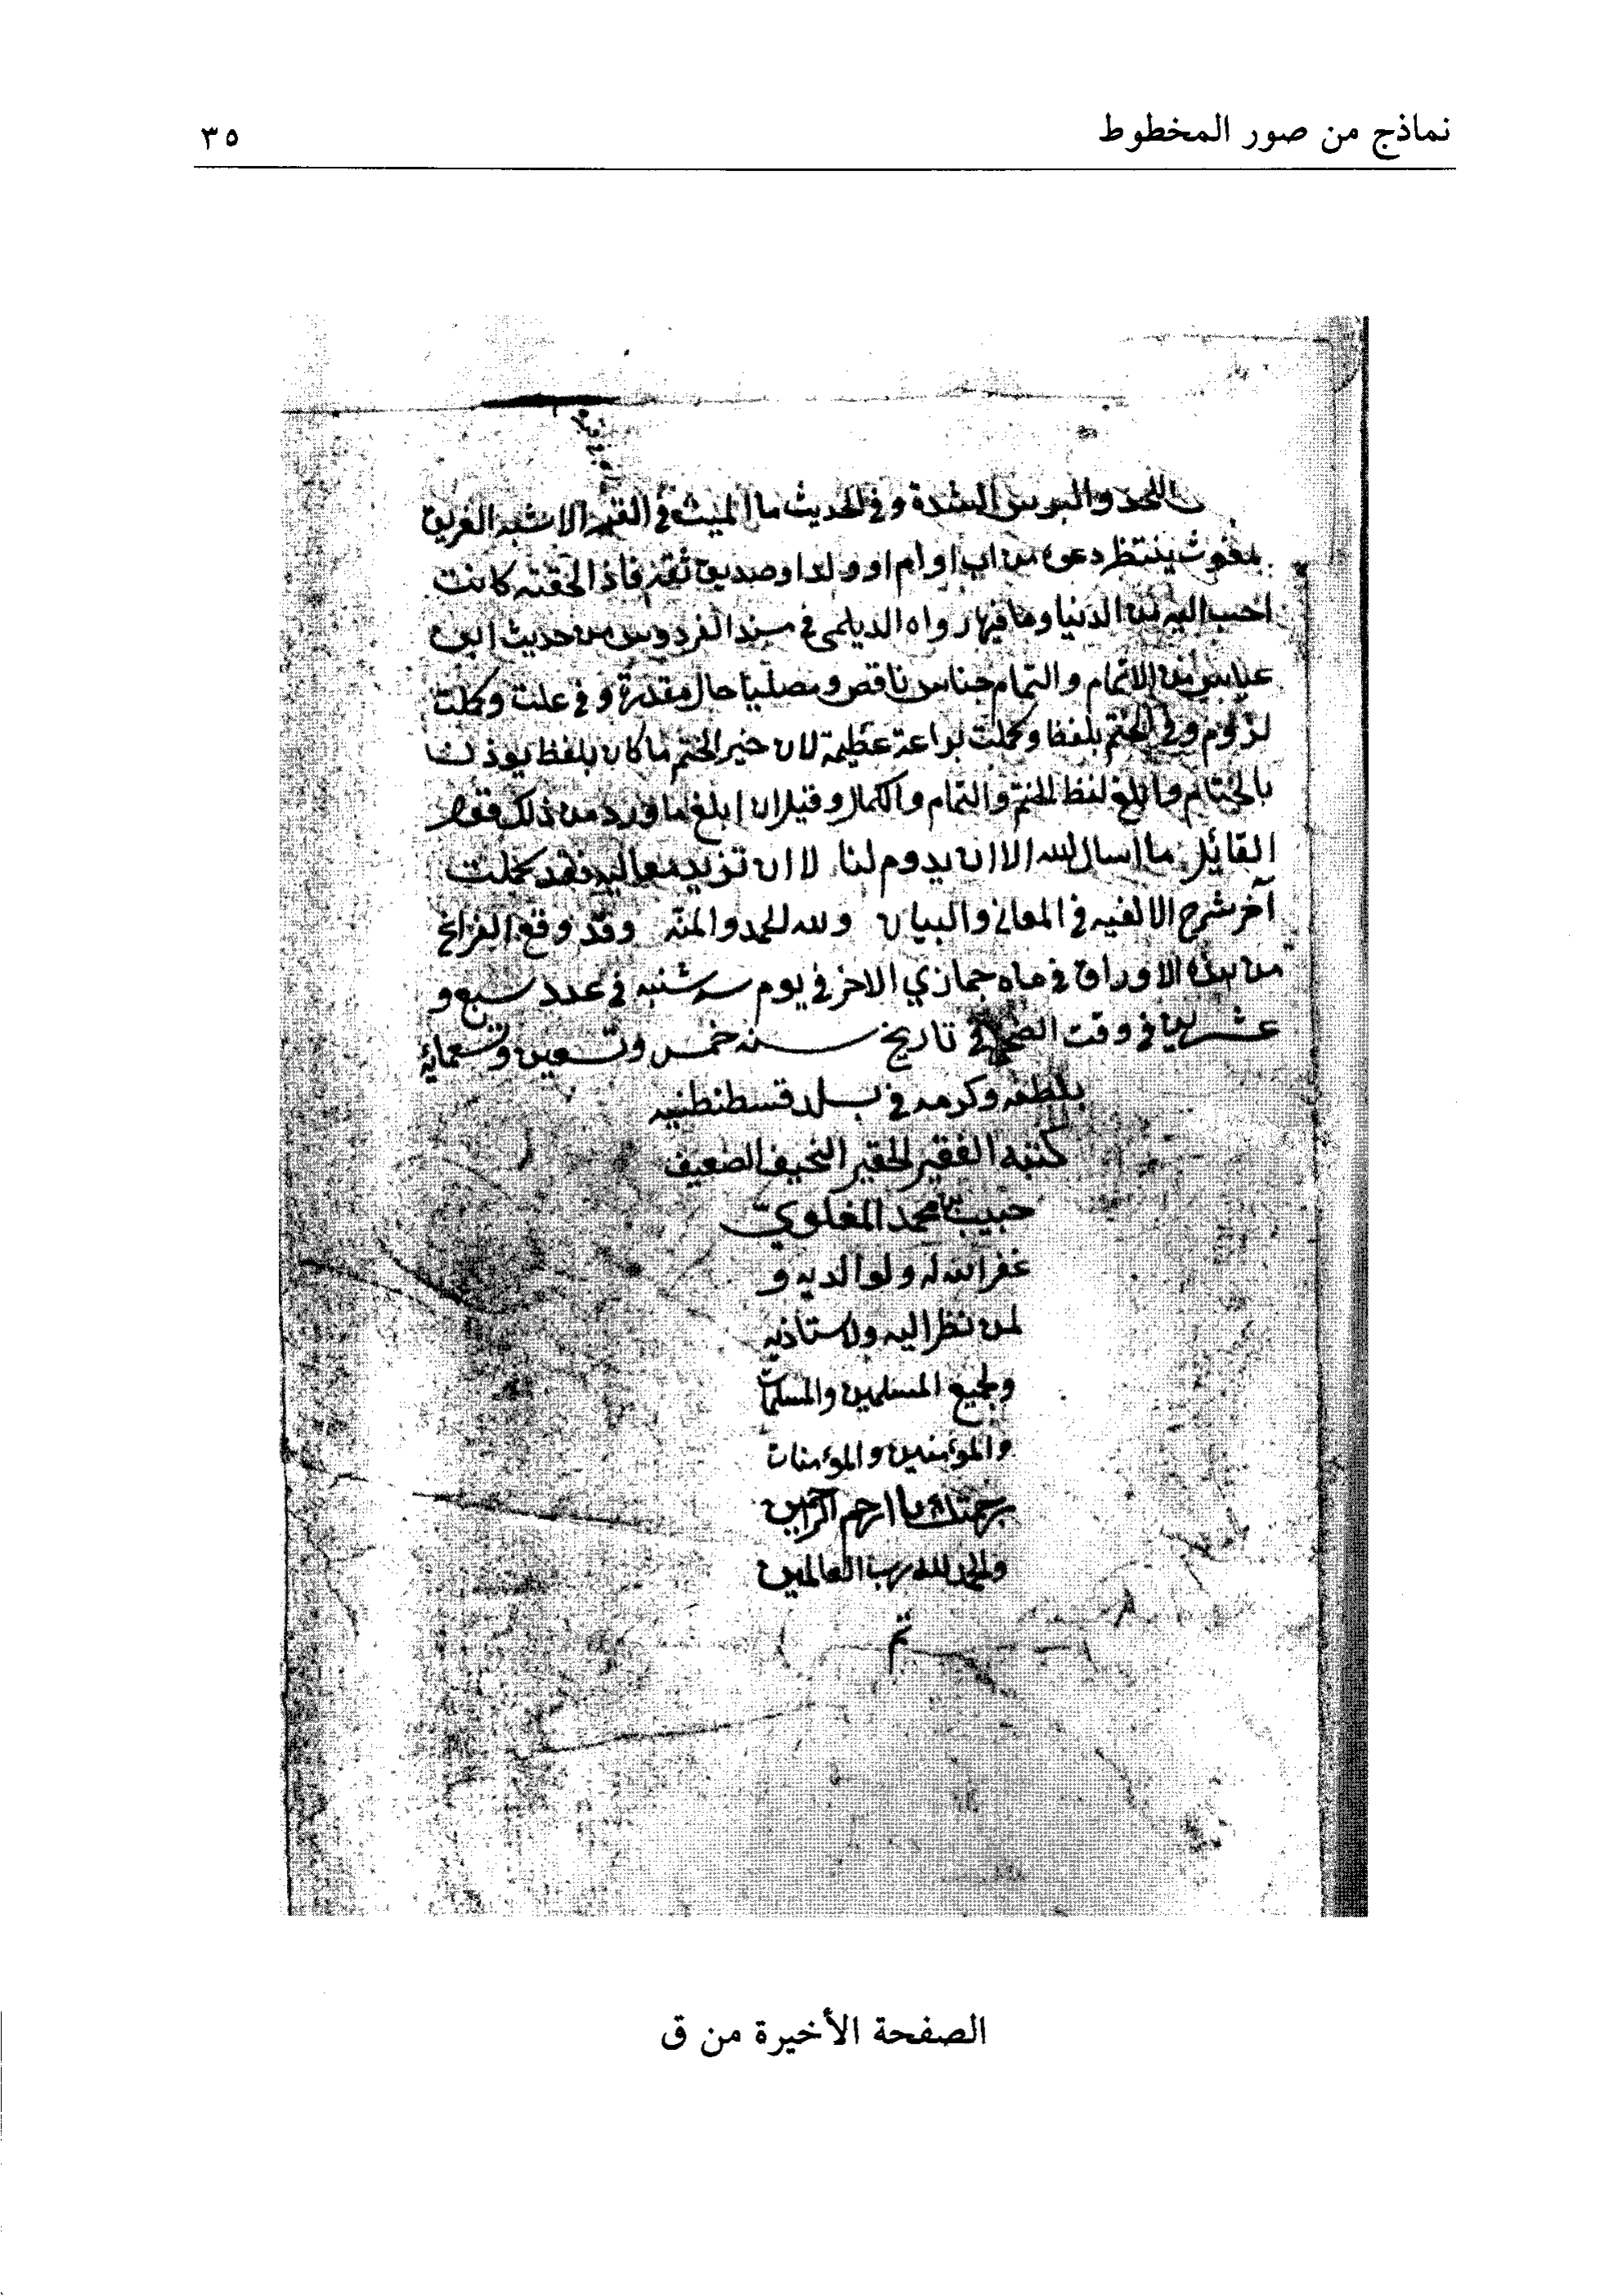 نماذج من صور المخطوط
٣٥
اللحد والبوس الشدة وفي الحديث ما الميت في القبر الا شبه الغريق
يغوث ينتظر دعوة من اب او ام او ولد او صديق ثقة فاذا لحقته كانت
احب اليه من الدنيا وما فيها رواه الديلمي في مسند الفردوس من حديث ابن
عباس الاتمام والتمام جناس ناقص ومصليا حال مقدرة وفي علت وكلت
لزوم وفي الختم بلفظ وكملت براعة عظيمة لان خير الختم ما كان بلفظ يوذن
بالختام وابلغ لفظ الختم والتمام والكمال وقيل ان ابلغ ما ورد من ذلك قول
القائل ما اسال الله الا ان يدوم لنا لا ان تزيد معاليه فقد كملت
آخر شرح الالفيه في المعاني والبيان ولله الحمد والمنة وقد وقع الفراغ
من هذه الاوراق في ماه جمازي الاخر في يوم سه شنبه في عدد سبع و
عشرين في وقت الضحى في تاريخ سنه خمس وتسعين وتسعمائة
بلطفه وكرمه في بلد قسطنطنيه
كتبه الفقير الحقير النحيف الضعيف
حبيب محمد المغلوي
غفر الله له ولوالديه و
لمن نظر اليه ولاستاذيه
ولجميع المسلمين والمسلمات
والمؤمنين والمؤمنات
برحمتك يا ارحم الراحمين
والحمد لله رب العالمين
تم
الصفحة الأخيرة من ق